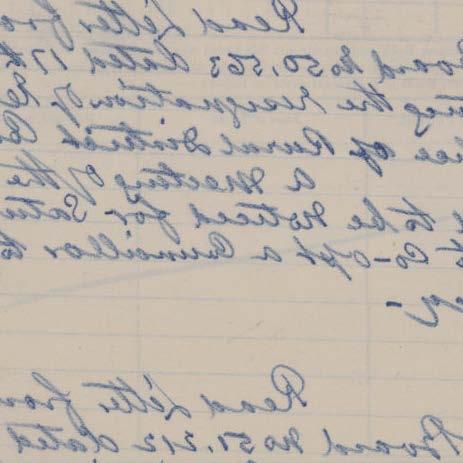 Read Letter from
Board No 50,563 dated 17th
the resignation of
of Rural District
a meeting of the
to be noticed for Satu
to Co-opt a Councillor to
Read Letter from
Board No 51,212 dated